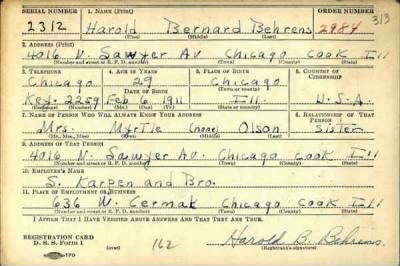 SERIAL NUMBER 1. NAME (Print) ORDER NUMBER
2312 Harold Bernard Behrens 2984 313
(First) (Middle) (Last)
2. ADDRESS (Print)
4016 N. Sawyer Av Chicago Cook Ill
(Number and street or R. F. D. number) (Town) (County) (State)
3. TELEPHONE 4. AGE IN YEARS 5. PLACE OF BIRTH 6. COUNTRY OF CITIZENSHIP
Chicago 29 Chicago
DATE OF BIRTH (Town or county)
Key. 2259 Feb 6 1911 Ill U.S.A.
(Exchange) (Number) (Mo.) (Day) (Yr.) (State or country)
7. NAME OF PERSON WHO WILL ALWAYS KNOW YOUR ADDRESS 8. RELATIONSHIP OF THAT PERSON
Mrs. Myrtle (none) Olson Sister
(Mr., Mrs., Miss) (First) (Middle) (Last)
9. ADDRESS OF THAT PERSON
4016 N. Sawyer Av. Chicago Cook Ill
(Number and street or R. F. D. number) (Town) (County) (State)
10. EMPLOYER'S NAME
S. Karpen and Bro.
11. PLACE OF EMPLOYMENT OR BUSINESS
636 W. Cermak Chicago Cook Ill
(Number and street or R. F. D. number) (Town) (County) (State)
I AFFIRM THAT I HAVE VERIFIED ABOVE ANSWERS AND THAT THEY ARE TRUE.
REGISTRATION CARD
D. S. S. Form 1 (over) 162 Harold B. Behrens
170 (Registrant's signature)